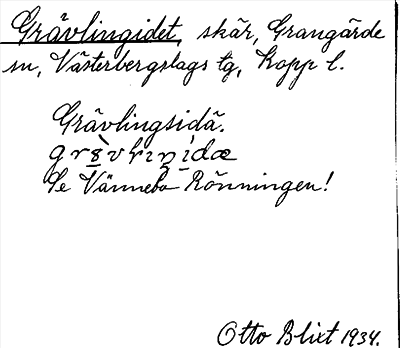 Grävlingidet, skär, Grangärde
sn, Västerbergslags tg, Kopp l.
Grävlingsidä.
Se Vännebo Rönningen!
Otto Blixt 1934.